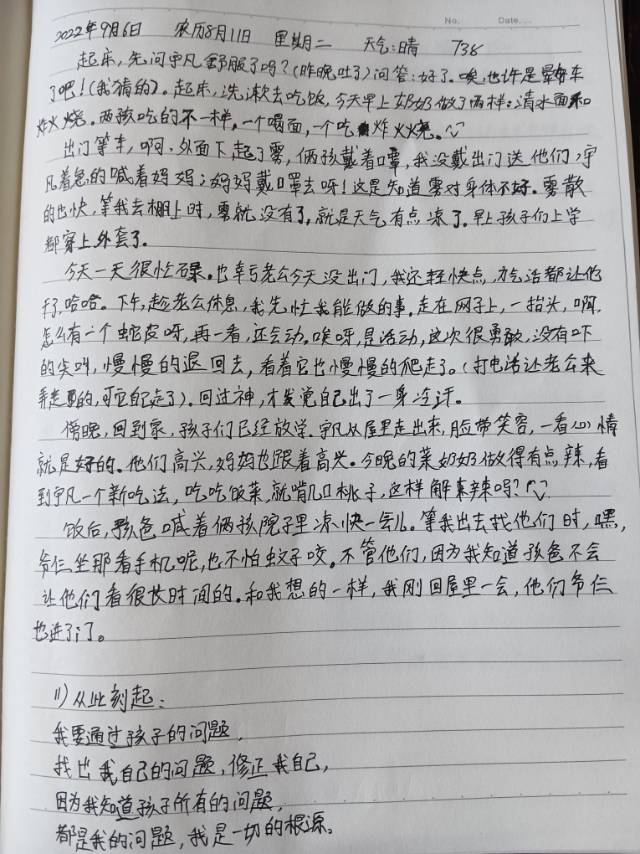 No. Date.
2022年9月6日 农历8月11日 星期二 天气:晴 738
起床,先问宇凡舒服了吗?(昨晚吐了)问答:好了。唉,也许是晕车
了吧!(我猜的)。起床,洗漱去吃饭,今天早上奶奶做了两样:清水面和
炸火烧。两孩吃的不一样,一个喝面,一个吃炸火烧。
出门等车,啊,外面下起了雾,俩孩戴着口罩,我没戴出门送他们,宇
凡着急的喊着妈妈;妈妈戴口罩去呀!这是知道雾对身体不好。雾散
的也快,等我去棚上时,雾就没有了,就是天气有点凉了。早上孩子们上学
都穿上外套了。
今天一天很忙碌。也幸亏老公今天没出门,我还轻快点,力气活都让他
干了,哈哈。下午,趁老公休息,我先忙我能做的事。走在网子上,一抬头,啊,
怎么有一个蛇皮呀,再一看,还会动。唉呀,是活动,这次很勇敢,没有吓
的尖叫,慢慢的退回去,看着它也慢慢的爬走了。(打电话让老公来
弄走的,可它自己走了)。回过神,才发觉自己出了一身冷汗。
傍晚,回到家,孩子们已经放学,宇凡从屋里走出来,脸带笑容,一看心情
就是好的。他们高兴,妈妈也跟着高兴。今晚的菜奶奶做得有点辣,看
到宇凡一个新吃法,吃吃饭菜,就啃几口桃子,这样解辣吗?
饭后,孩爸喊着俩孩院子里凉快一会儿。等我出去找他们时,嘿,
爷仨坐那看手机呢,也不怕蚊子咬。不管他们,因为我知道孩爸不会
让他们看很长时间的。和我想的一样,我刚回屋里一会,他们爷仨
也进了门。
11)从此刻起:
我要通过孩子的问题,
找出我自己的问题,修正我自己,
因为我知道孩子所有的问题,
都是我的问题,我是一切的根源。